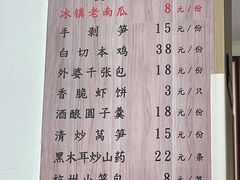 冰镇老南瓜 8元/份
手剥笋 15元/份
白切本鸡 38元/份
外婆千张包 18元/份
香脆虾饼 3元/只
酒酿圆子羹 18元/份
清炒莴笋 15元/份
黑木耳炒山药 22元/条
杭州小笼包 8元/笼